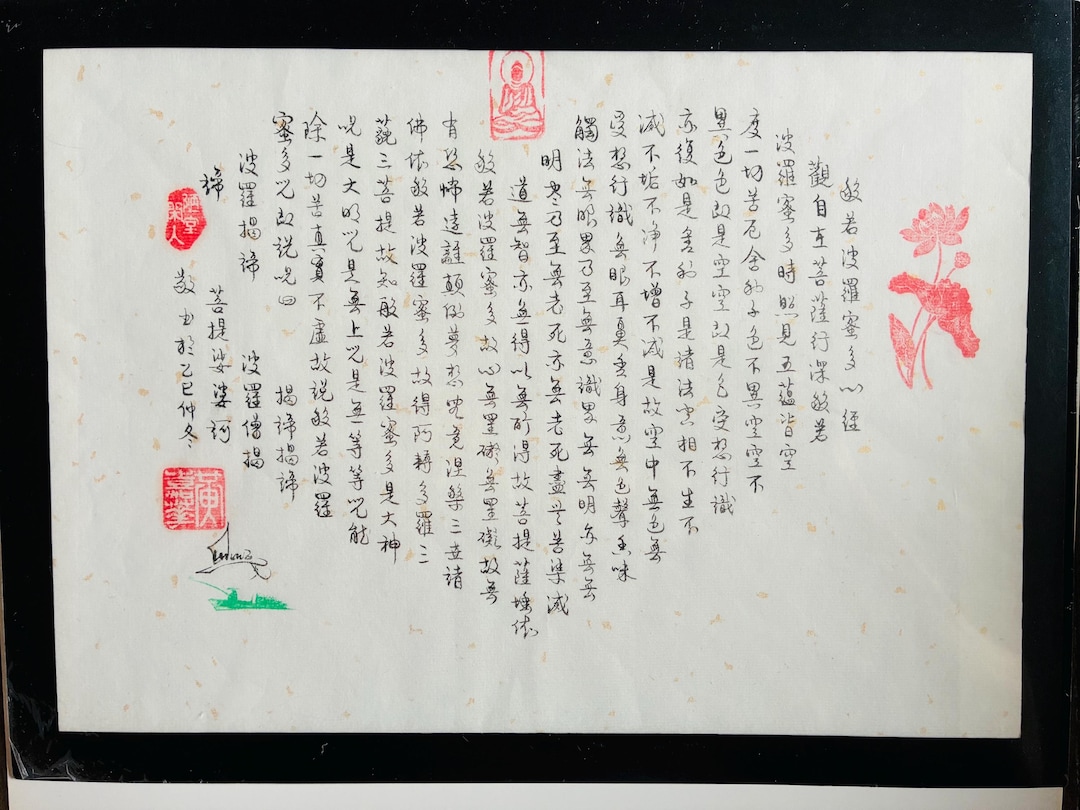 般若波羅蜜多心經
觀自在菩薩行深般若
波羅蜜多時照見五蘊皆空
度一切苦厄舍利子色不異空空不
異色色即是空空即是色受想行識
亦復如是舍利子是諸法空相不生不
滅不垢不淨不增不減是故空中無色無
受想行識無眼耳鼻舌身意無色聲香味
觸法無眼界乃至無意識界無無明亦無無
明盡乃至無老死亦無老死盡無苦集滅
道無智亦無得以無所得故菩提薩埵依
般若波羅蜜多故心無罣礙無罣礙故無
有恐怖遠離顛倒夢想究竟涅槃三世諸
佛依般若波羅蜜多故得阿耨多羅三
藐三菩提故知般若波羅蜜多是大神
咒是大明咒是無上咒是無等等咒能
除一切苦真實不虛故說般若波羅
蜜多咒即說咒曰 揭諦揭諦
波羅揭諦 波羅僧揭
諦 菩提娑婆訶
敬書於乙巳仲冬
陋室閑人